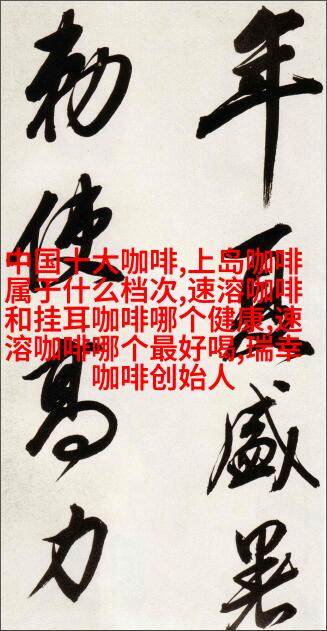 年夏盛暑
勅使高力
中国十大咖啡,上岛咖啡
属于什么档次,速溶咖啡
和挂耳咖啡哪个健康,速
溶咖啡哪个最好喝,瑞幸
咖啡创始人